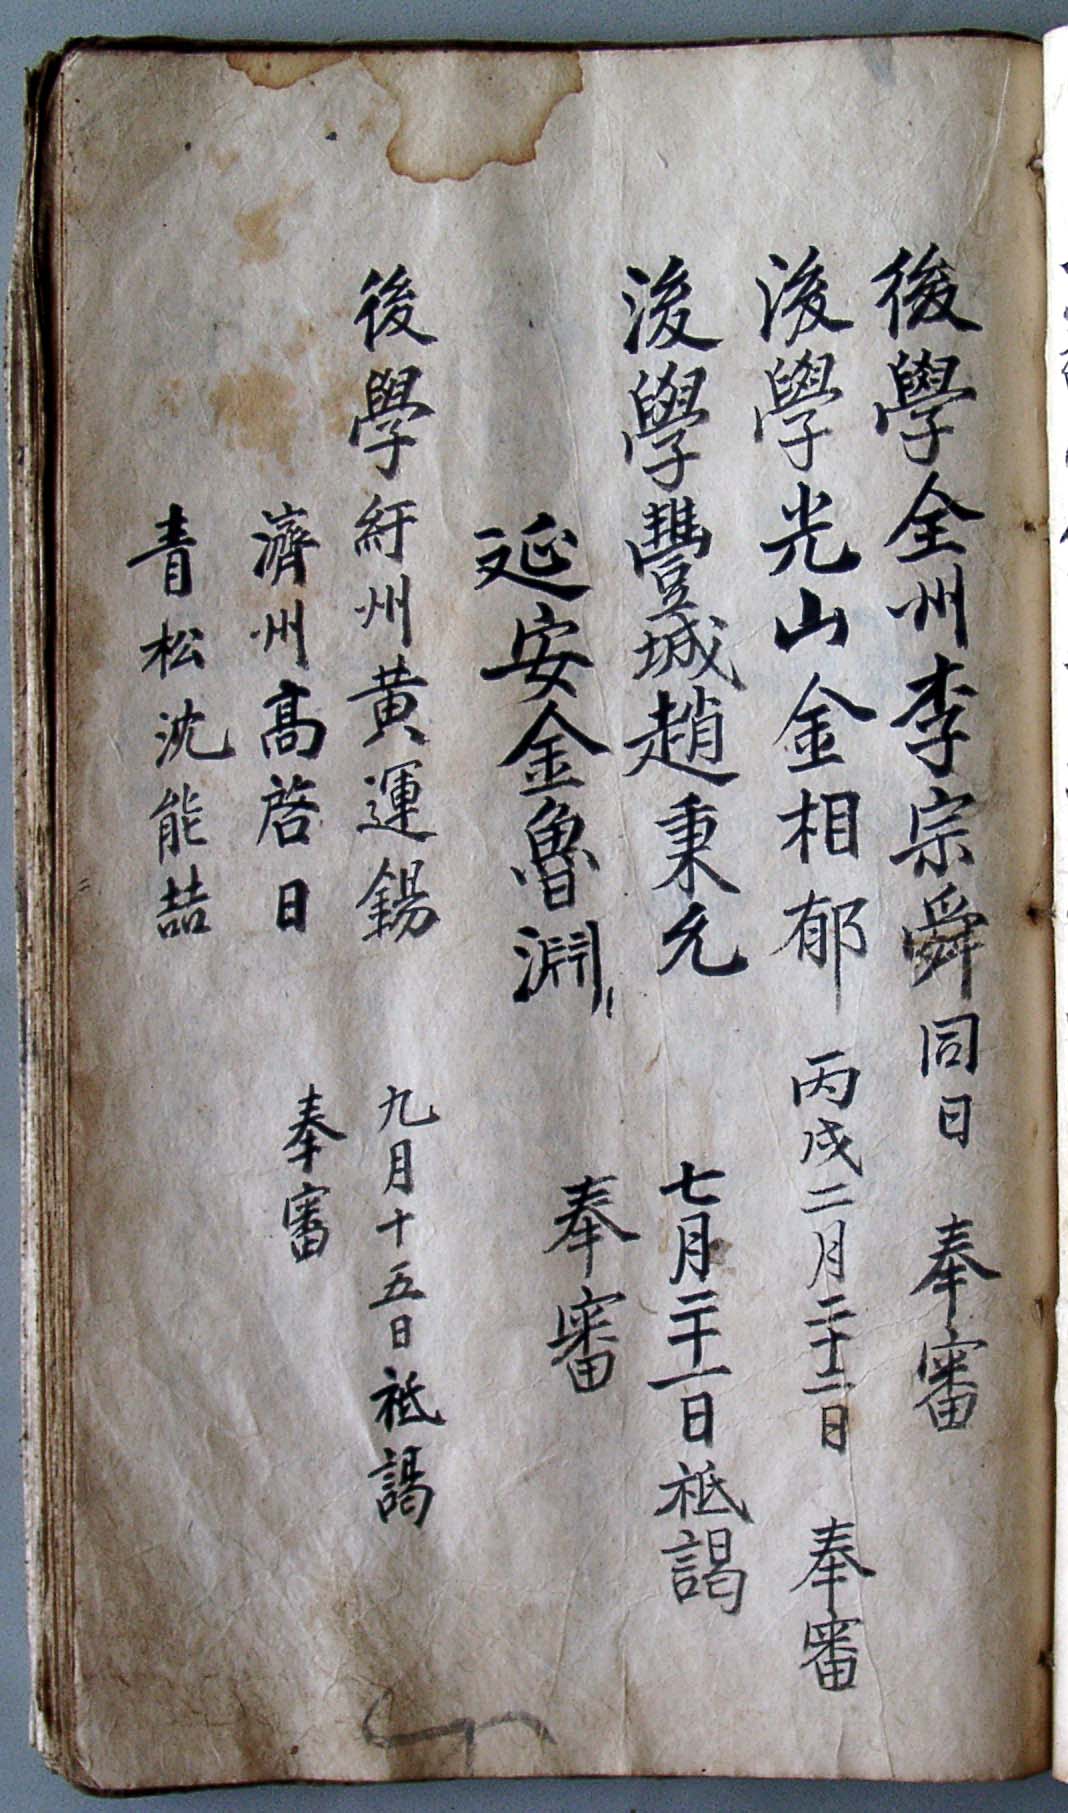 後學全州李宗舜同日 奉審
後學光山金相郁 丙戌二月二十二日 奉審
後學豐城趙秉允 七月二十一日祗謁
延安金魯淵 奉審
後學紆州黃運錫 九月十五日祗謁
濟州高啓日 奉審
青松沈能喆